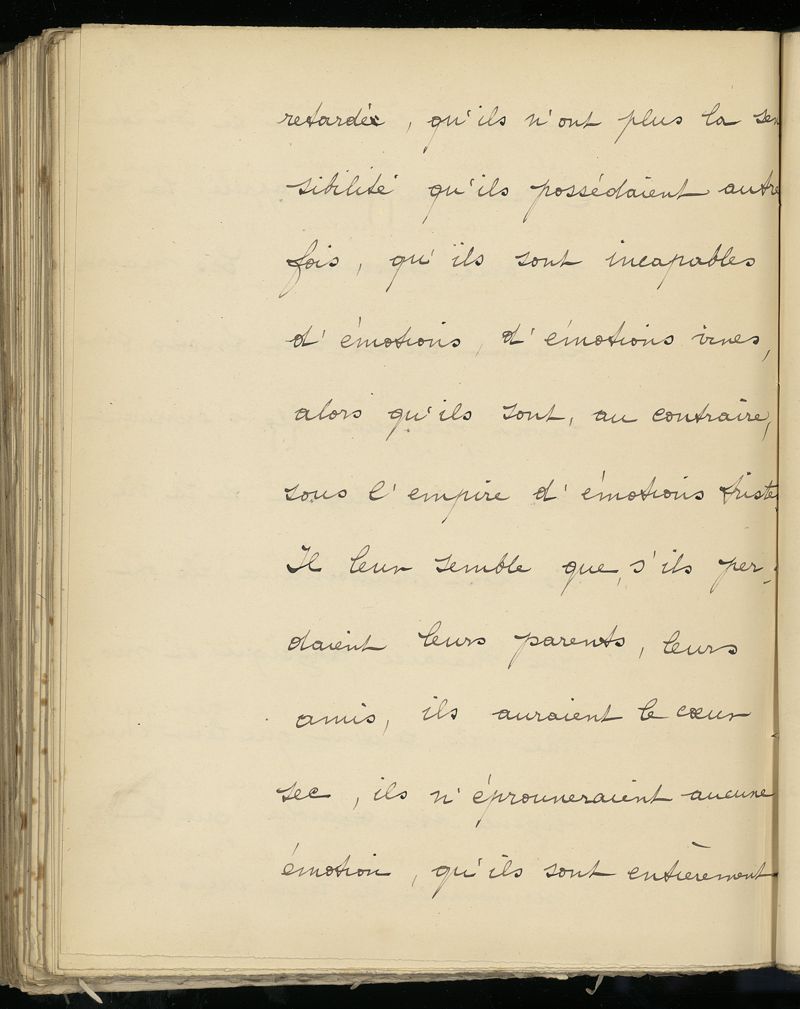 retardée, qu'ils n'ont plus la sen
sibilité qu'ils possédaient autre
fois, qu'ils sont incapables
d'émotions, d'émotions vives,
alors qu'ils sont, au contraire,
sous l'empire d'émotions tristes
Il leur semble que, s'ils per-
daient leurs parents, leurs
amis, ils auraient le cœur
sec, ils n'éprouveraient aucune
émotion, qu'ils sont entièrement